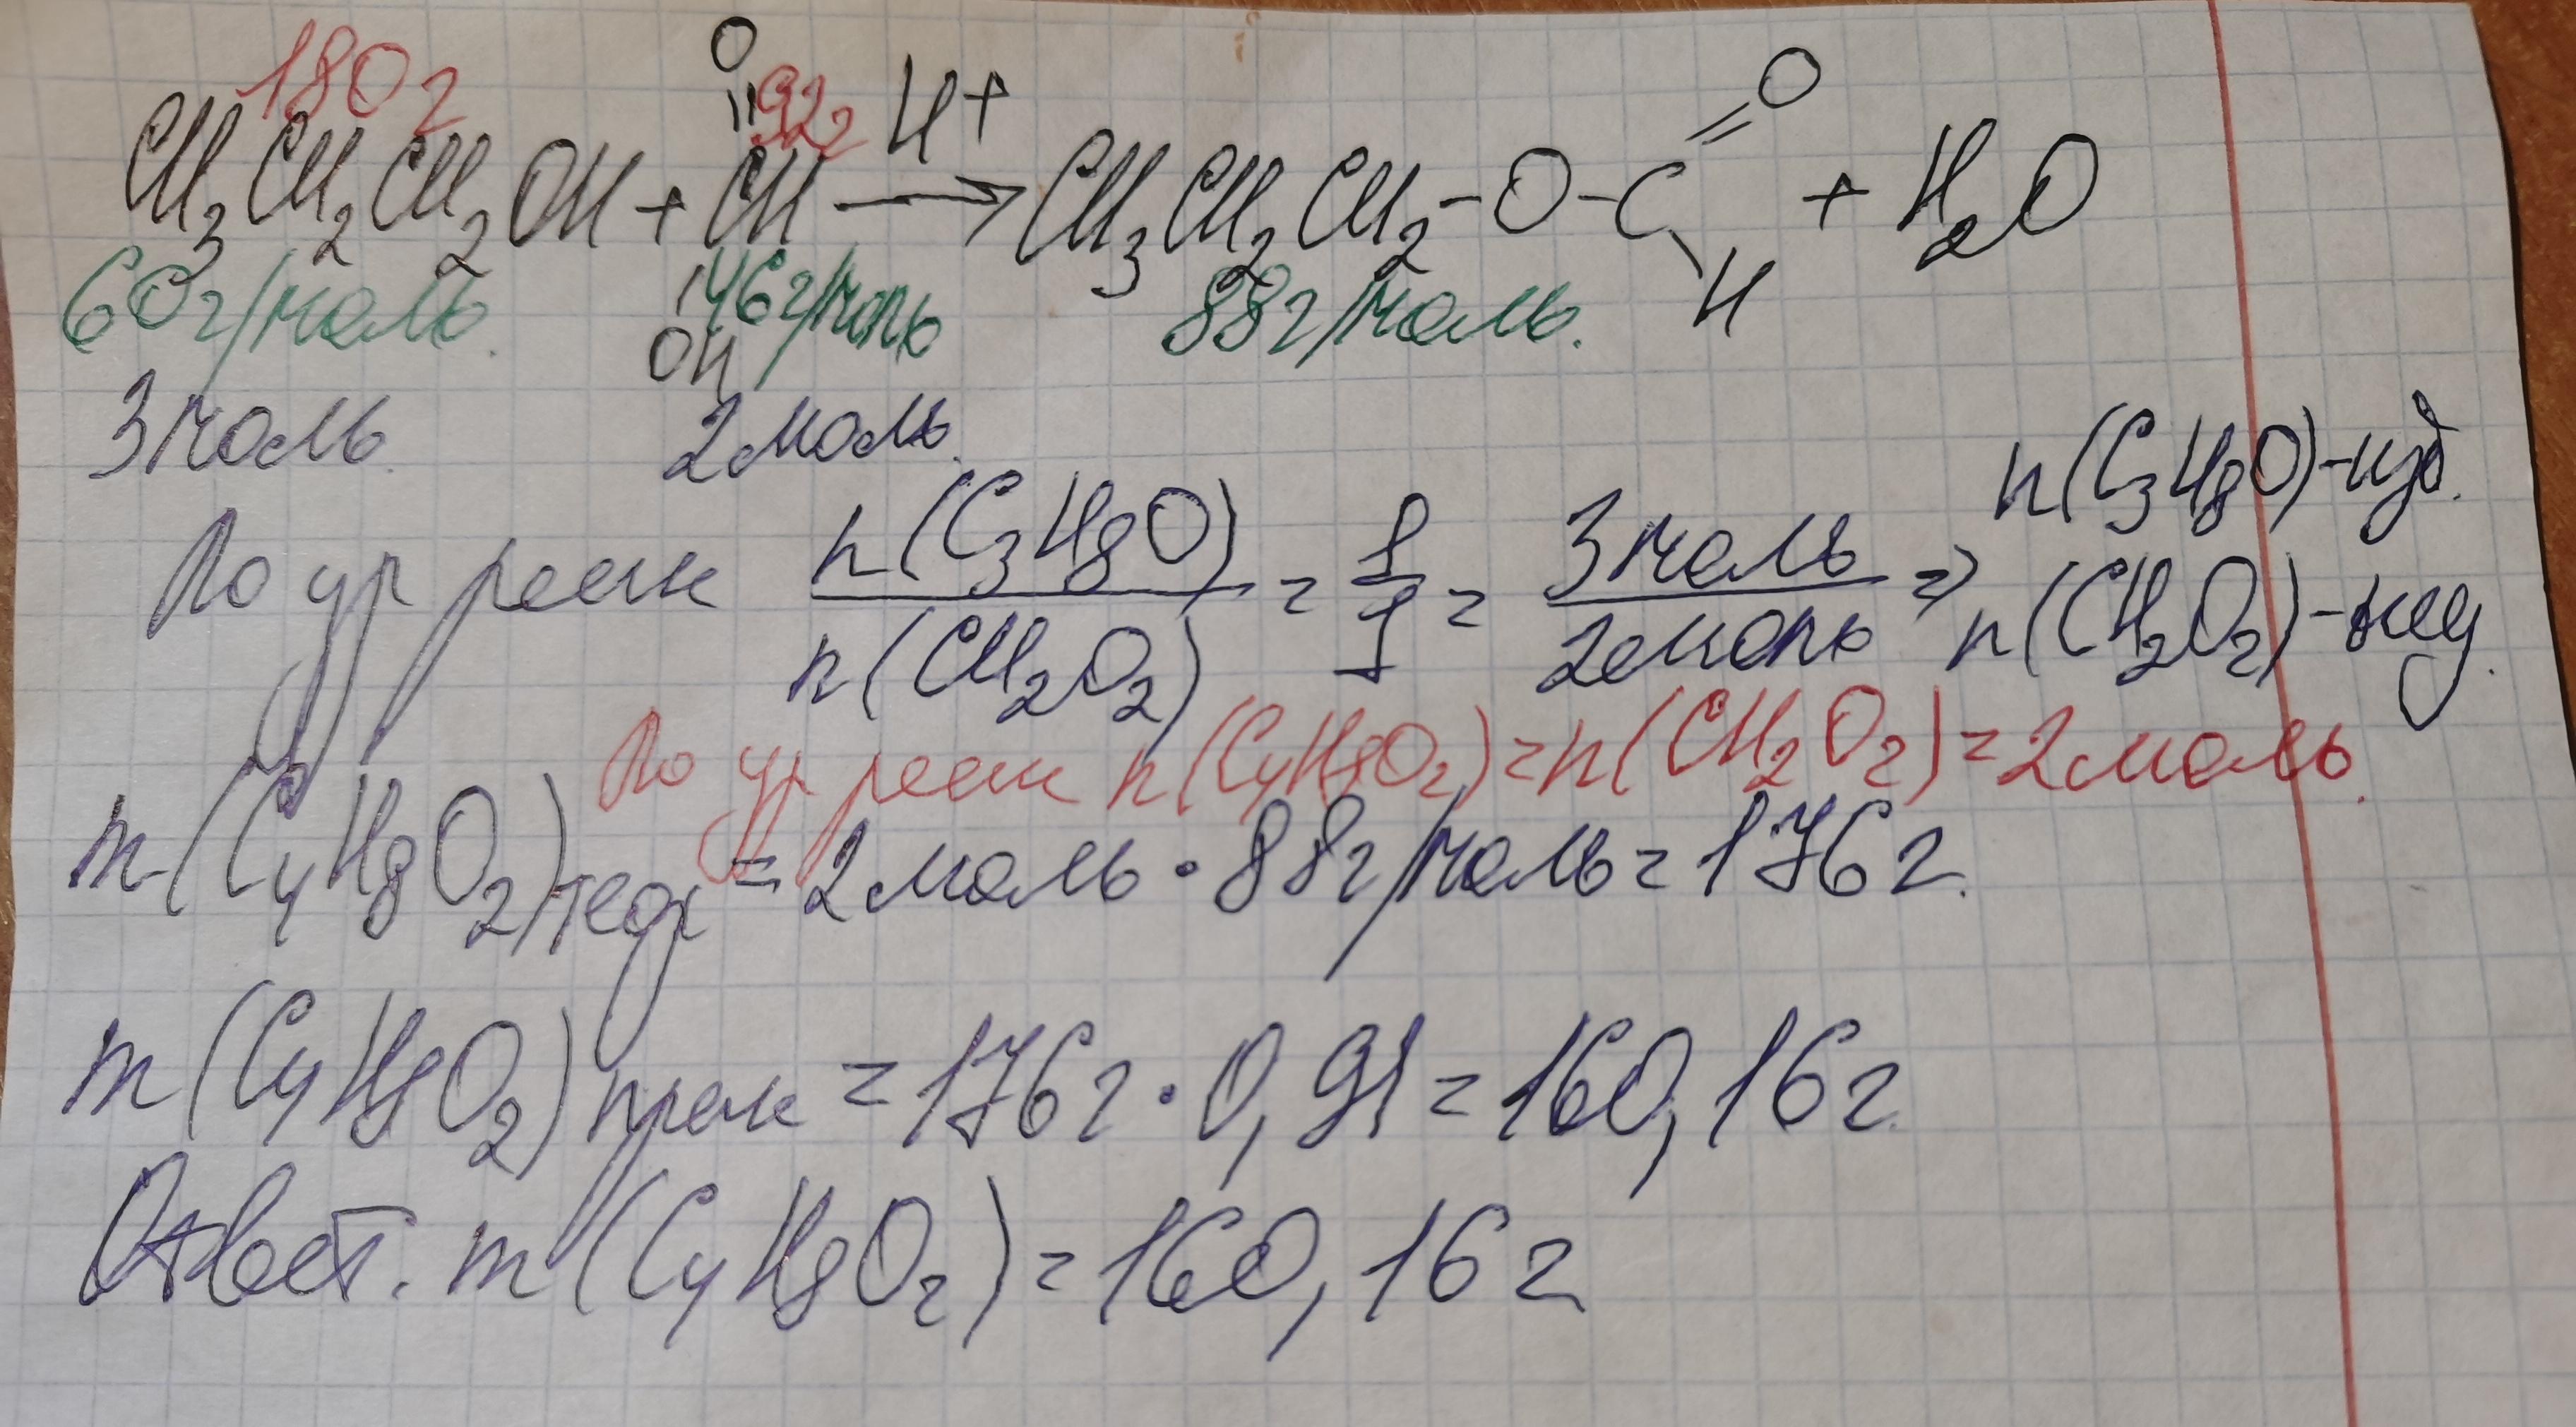 180 г
O
||
92 г
H+
O
CH3CH2CH2OH + CH → CH3CH2CH2-O-C + H2O
60 г/моль. 46 г/моль 88 г/моль. H
OH
3 моль. 2 моль.
n(C3H8O)-изб.
По ур реак n(C3H8O)/n(CH2O2) = 1/1 = 3 моль/2 моль ⇒
n(CH2O2)-нед.
По ур реак n(C4H8O2)=n(CH2O2)=2 моль.
m(C4H8O2)теор = 2 моль · 88 г/моль = 176 г.
m(C4H8O2)прак = 176 г · 0,91 = 160,16 г.
Ответ. m(C4H8O2) = 160,16 г